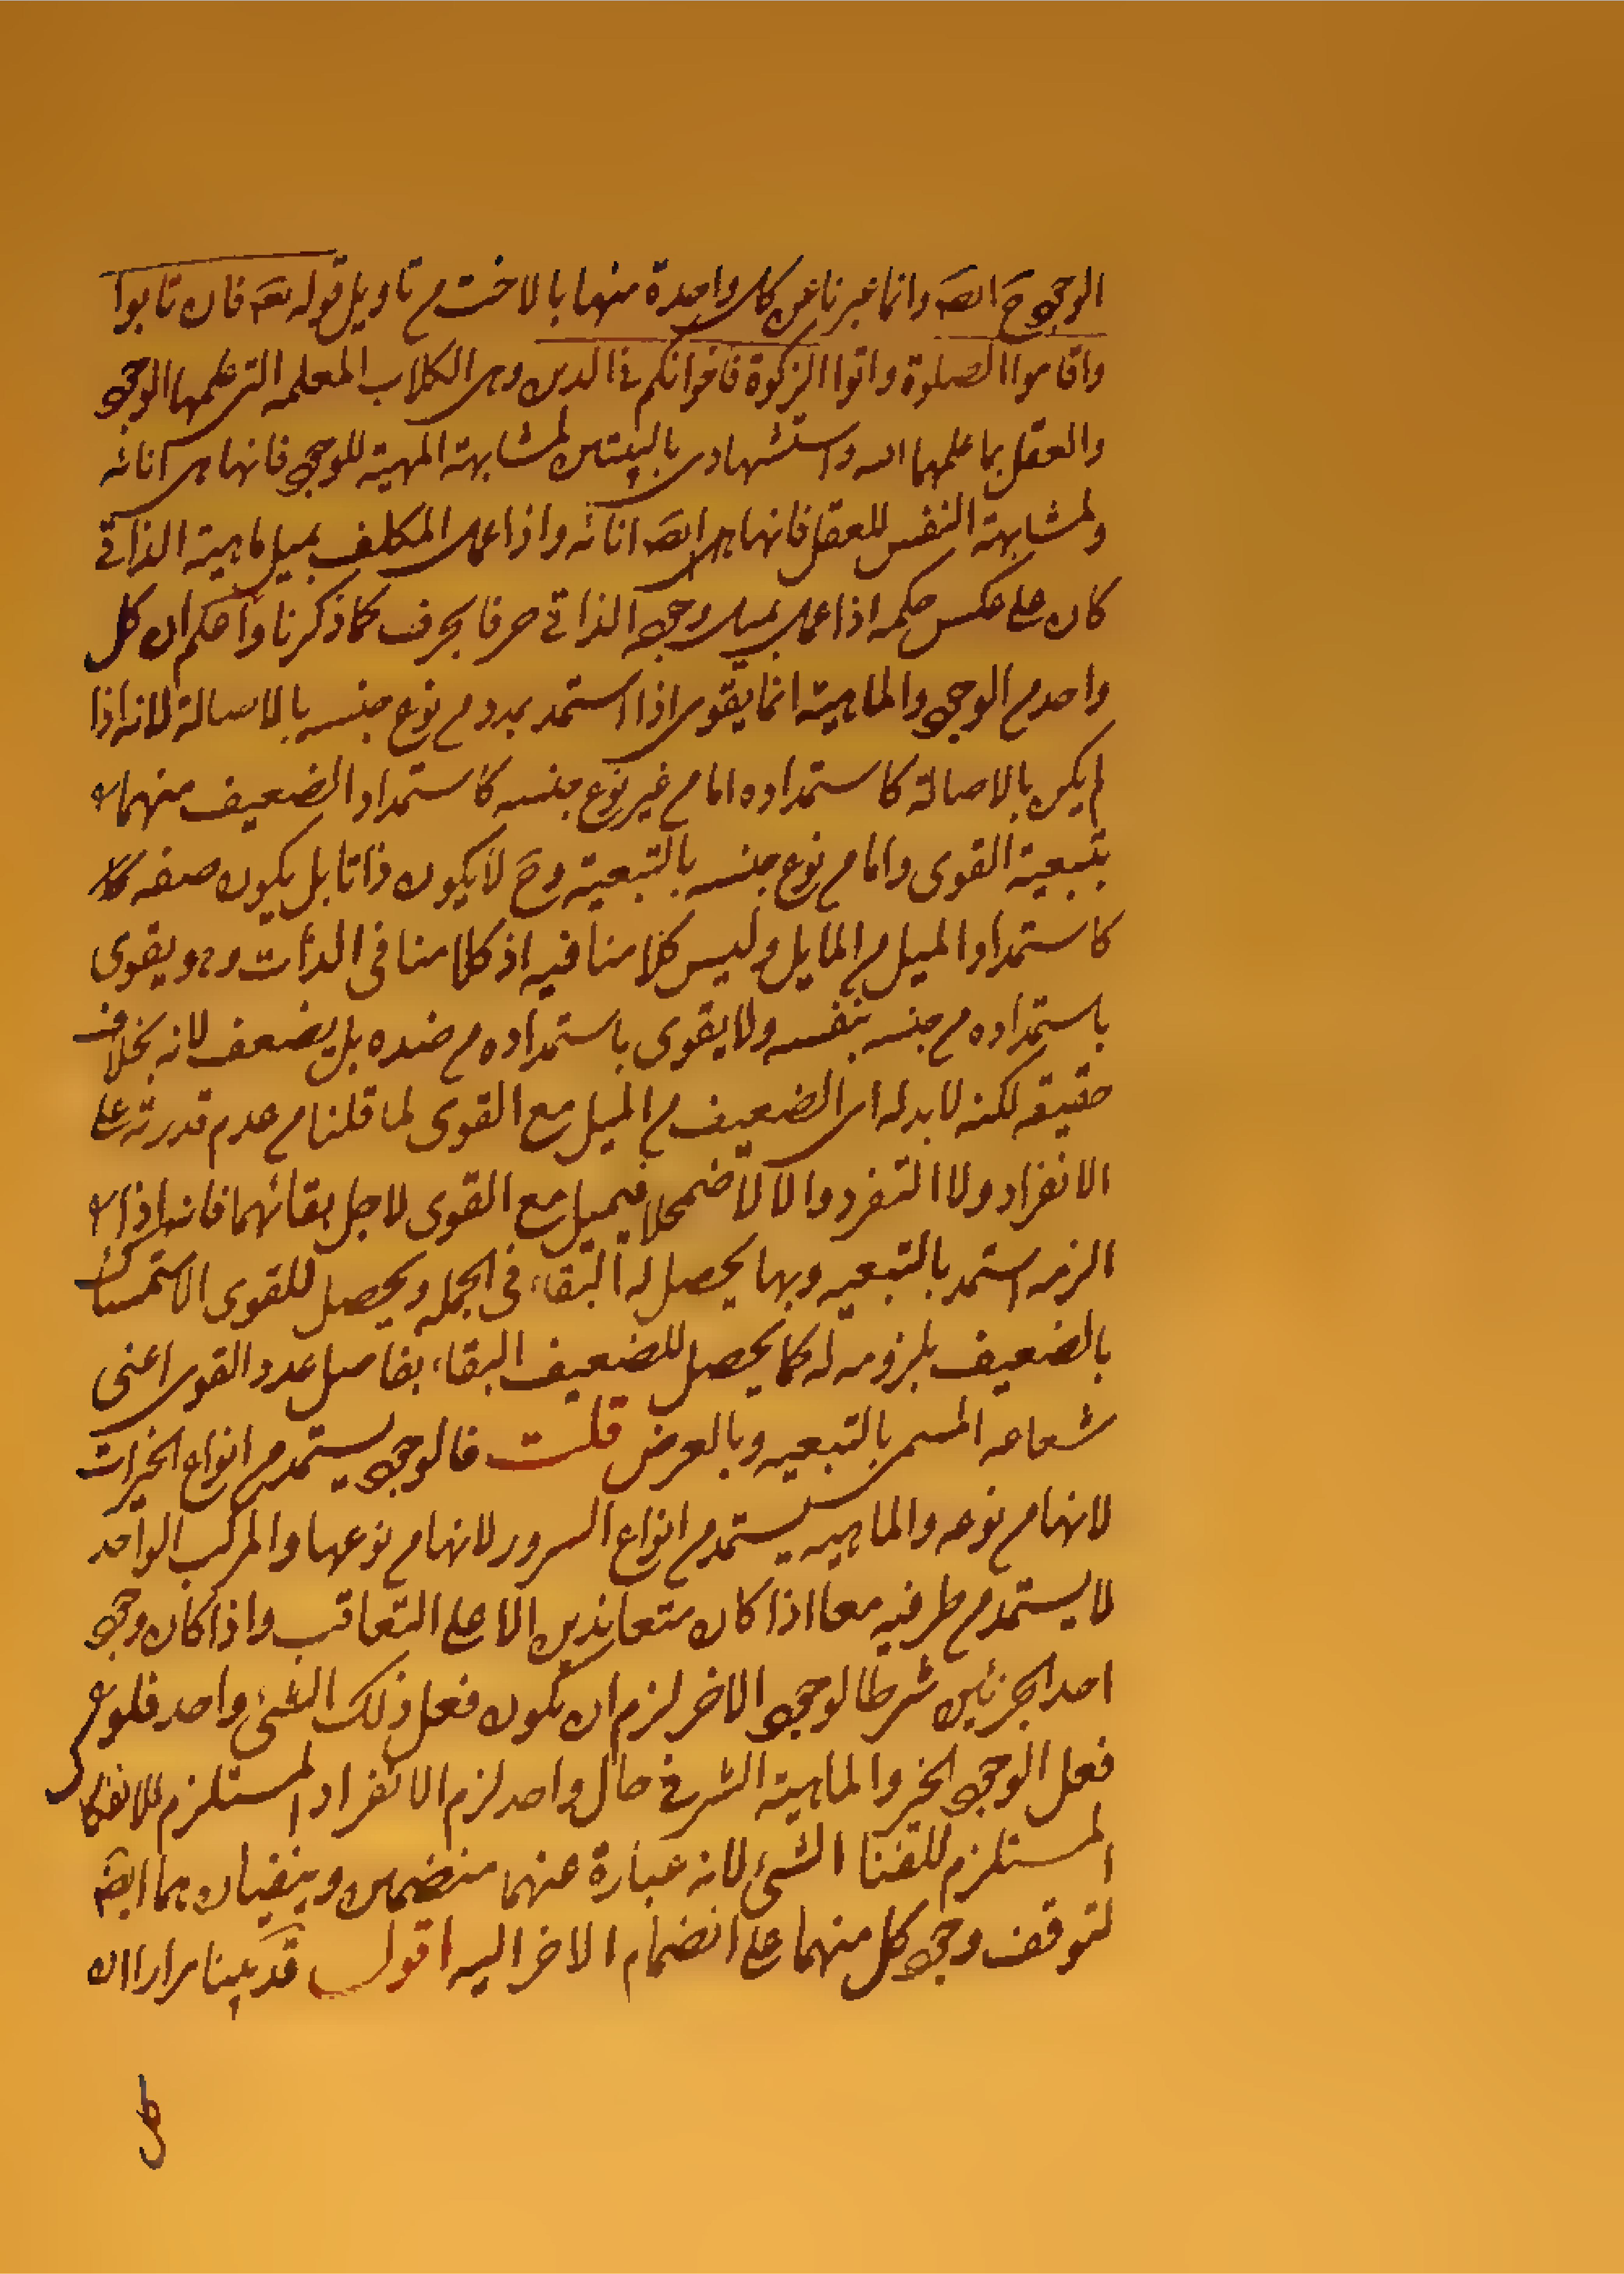 الوجوح ايضَ وانما عبرنا عن كل واحدة منهما بالاخت م تاويل قوله تعَه فان تابوا
واقاموا الصلوة واتوا الزكوة فاخوانكم في الدين وهي الكلاب المعلمه التي علمها الوجو
والعقل بما علمهما الله واستشهادي بالبيتين لمشابهة المهية للوجو فانها هي انائه
ولمشابهة النفس للعقل فانها هي ايضَ انائه واذا عمل المكلف بميل ماهيته الذاتي
كان على عكس حكمه اذا عمل بميل وجوه الذاتي حرفا بحرف كما ذكرنا واحكم ان كل
واحد م الوجو والماهية انما يقوى اذا استمد بمدد م نوع جنسه بالاصالة لانه اذا
لم يكن بالاصالة كاستمداده اما م غير نوع جنسه كاستمداد الضعيف منهما
بتبعية القوى واما م نوع جنسه بالتبعية وحَ لا يكون ذاتا بل يكون صفه
كاستمداد الميل م المايل وليس كلامنا فيه اذ كلامنا في الذات وهو يقوى
باستمداده م جنسه بنفسه ولا يقوى باستمداده م ضده بل يضعف لانه بخلاف
حقيقه لكنه لا بد له اى الضعيف م الميل مع القوى لما قلنا م عدم قدرته على
الانفراد ولا التفرد والا لاضمحلا فيميل مع القوى لاجل بقائهما فانه اذا
الزمه استمد بالتبعيه وبها يحصل له البقاء في الجمله ويحصل للقوى الاستمساك
بالضعيف بلزومه له كما يحصل للضعيف البقاء بفاصل مدد القوى اعنى
شعاعه المسمى بالتبعيه وبالعرض قلت فالوجو يستمد م انواع الخيرات
لانها م نوعه والماهيه يستمد م انواع السرور لانها م نوعها والمركب الواحد
لا يستمد م طرفيه معا اذا كان متعاندين الا على التعاقب واذا كان وجو
احد الجزئين شرطا لوجو الاخر لزم ان يكون فعل ذلك الشئ واحد فلو
فعل الوجو الخير والماهية الشر في حال واحد لزم الانفراد المستلزم للانفكا
المستلزم للفنا الشئ لانه عبارة عنهما منضمين وينفيان هما ايضَ
لتوقف وجو كل منهما على انضمام الاخر اليه اقول قد بينا مرارا ان
كل